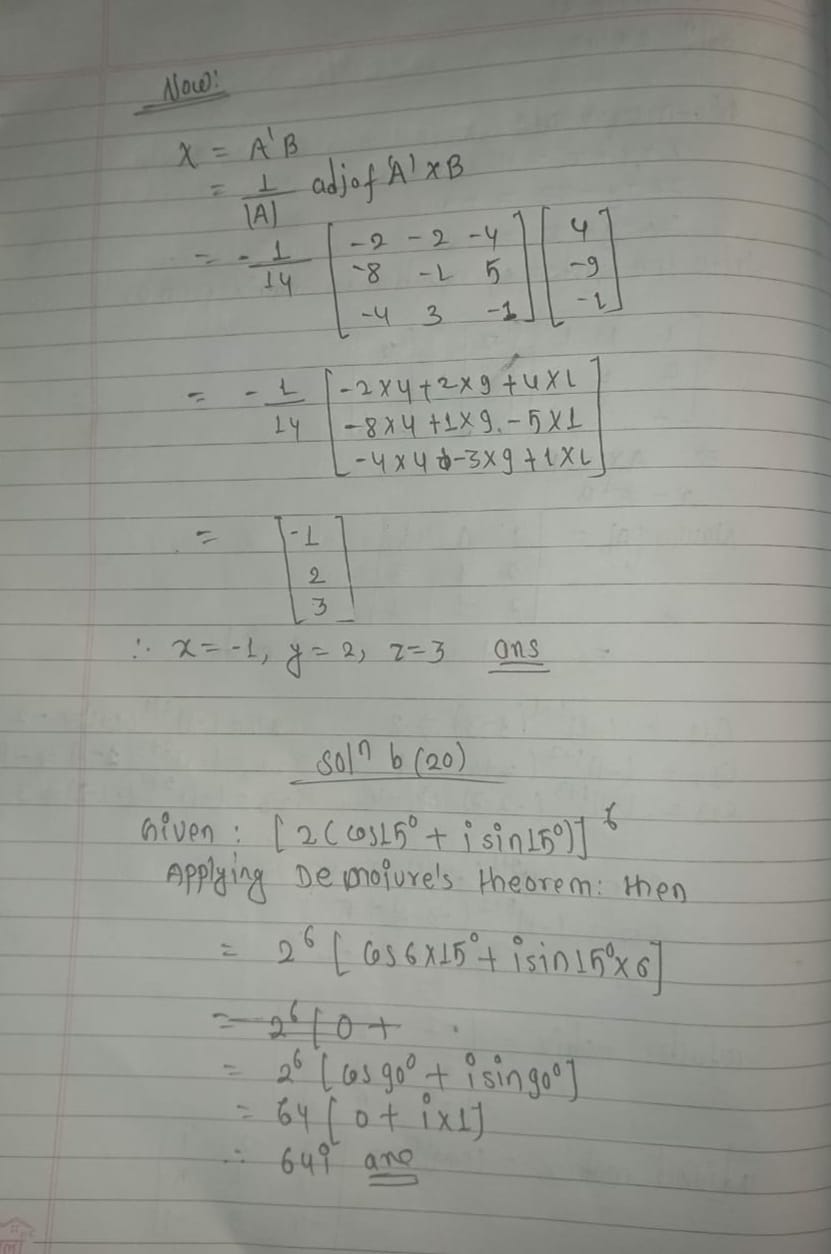 Now:
x = A'B
= 1/|A| adj of 'A' × B
= - 1/14 [-2 -2 -4] [4]
[-8 -1 5] [-9]
[-4 3 -1] [-1]
= - 1/14 [-2×4+2×9+4×1]
[-8×4+1×9.-5×1]
[-4×4 -3×9+1×1]
= [-1]
[2]
[3]
∴ x=-1, y=2, z=3 ans
solⁿ b (20)
Given : [2(cos15°+ i sin15°)]⁶
Applying De moivre's theorem: then
= 2⁶ [cos6×15°+ isin15°×6]
= 2⁶ [0+
= 2⁶ [cos90° + isin90°]
= 64 [0+ i×1]
∴ 64i ans